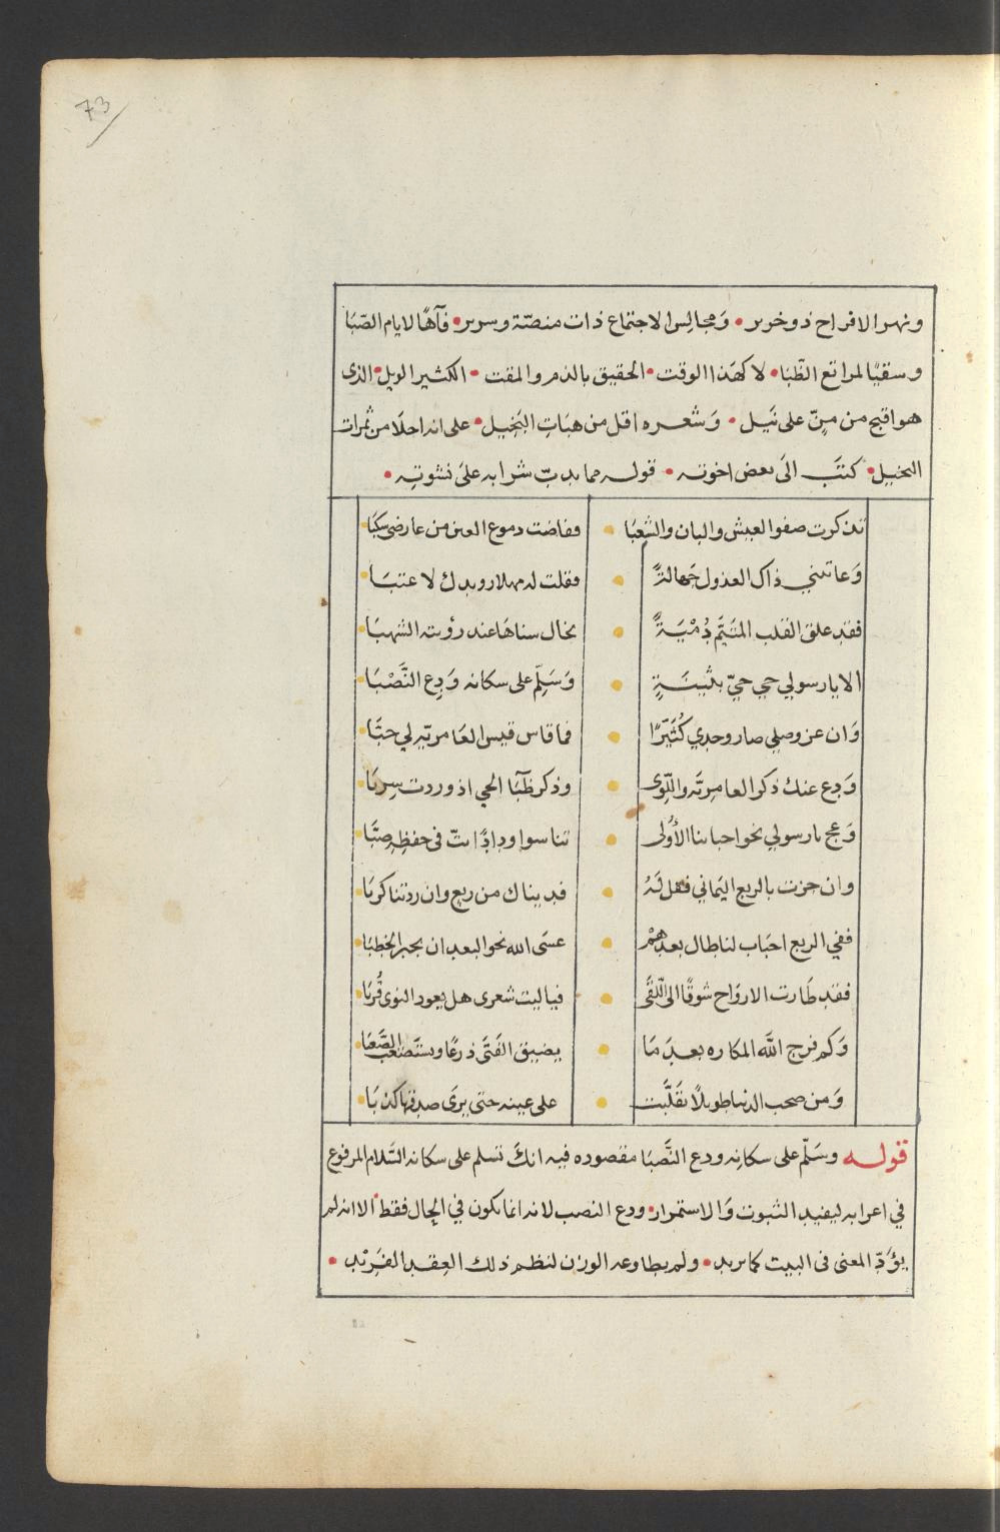 73
ونهر الافراح ذو خرير • وَمجالِس الاجتماع ذات منصّة وسرير • فآهًا لايام الصّبَا
وسقيًا لمراتع الظّبَا • لا كهَذا الوقت • الحقيق بالذم والمقت • الكثير الويل • الذى
هو اقبح من مِنّ على نَيل • وَشعره اقل من هبَاتِ البَخِيل • على انه احلَا من ثمرات
النخيل • كتبَ الىَ بعض اخوته • قوله مما يدبّ شرابه علىَ نشوتِه •
تذكرت صفو العيش والبان والشعبَا • وفاضت دموع العين من عارضى سكبَا
وَعاتبني ذاك العذول جَهالةً • فقلت له مهلا رويدك لا عتبَا
فقد علق القلب المتَيَّم دُمْيَةً • يخال سناهَا عند رؤيته الشهبَا
الا يا رسولي حي حيّ بثينَةٍ • وَسَلِّم على سكانه وَدِع النَّصْبَا
وَان عز وصلي صار وجدي كُثَيّرًا • فما قاس قيس العَامرية لي حبَّا
وَدع عنك ذكر العامِريَّه واللِّوى • وذكر ظبَآ الحي اذ وردت سِربَا
وَعج يا رسولي نحو احبابنا الأُولى • تناسوا ودادًا بتّ في حفظِهِ صبَّا
وان جزت بالربع اليَماني فقل لَهُ • فديناك من ربع وان زدتنا كربَا
ففي الربع احبَاب لنا طال بعدهمْ • عسَى الله نحو البعد ان يجبر الخطبَا
فقد طَارت الارواح شوقًا الى اللّقَى • فيا ليت شعرى هل يعود النوى قُربَا
وَكم فرج اللَّه المكاره بعدَ مَا • يضيق الفَتَى ذرعًا ويستَصْعب الصَّعبَا
وَمن صحب الدنيا طويلًا تقَلّبَت • على عينه حتى يرىَ صدقها كذبَا
قوله وسَلّم على سكانِه ودع النَّصْبَا مقصوده فيه انكَ تسلم على سكانه السَّلام المرفوع
في اعرابه ليفيد الثبوت وَالاستمرار • ودع النصب لانه انما يكون في الحال فقط • الا انه لم
يؤَدّ المعنى فى البيت كما يريد • ولم يطاوعه الوزن لنظم ذلك العِقد الفَريْد •